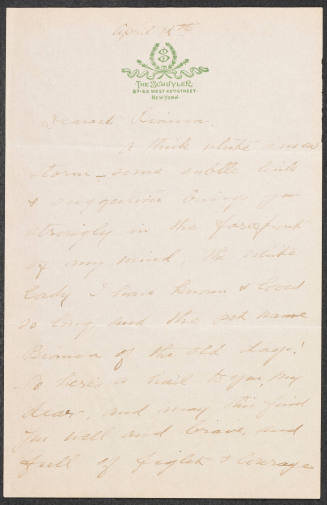 April 18th
S
THE SCHUYLER
57-63 WEST 45TH STREET
NEW YORK
Dearest
I think white
storm - some subtle link
& suggestion brings you
strongly in the forefront
of my mind, the white
lady I have known & loved
so long and the pet name
of the old days!
So here's a hail to you, my
dear, and may this find
you well and brave, and
full of fight & courage